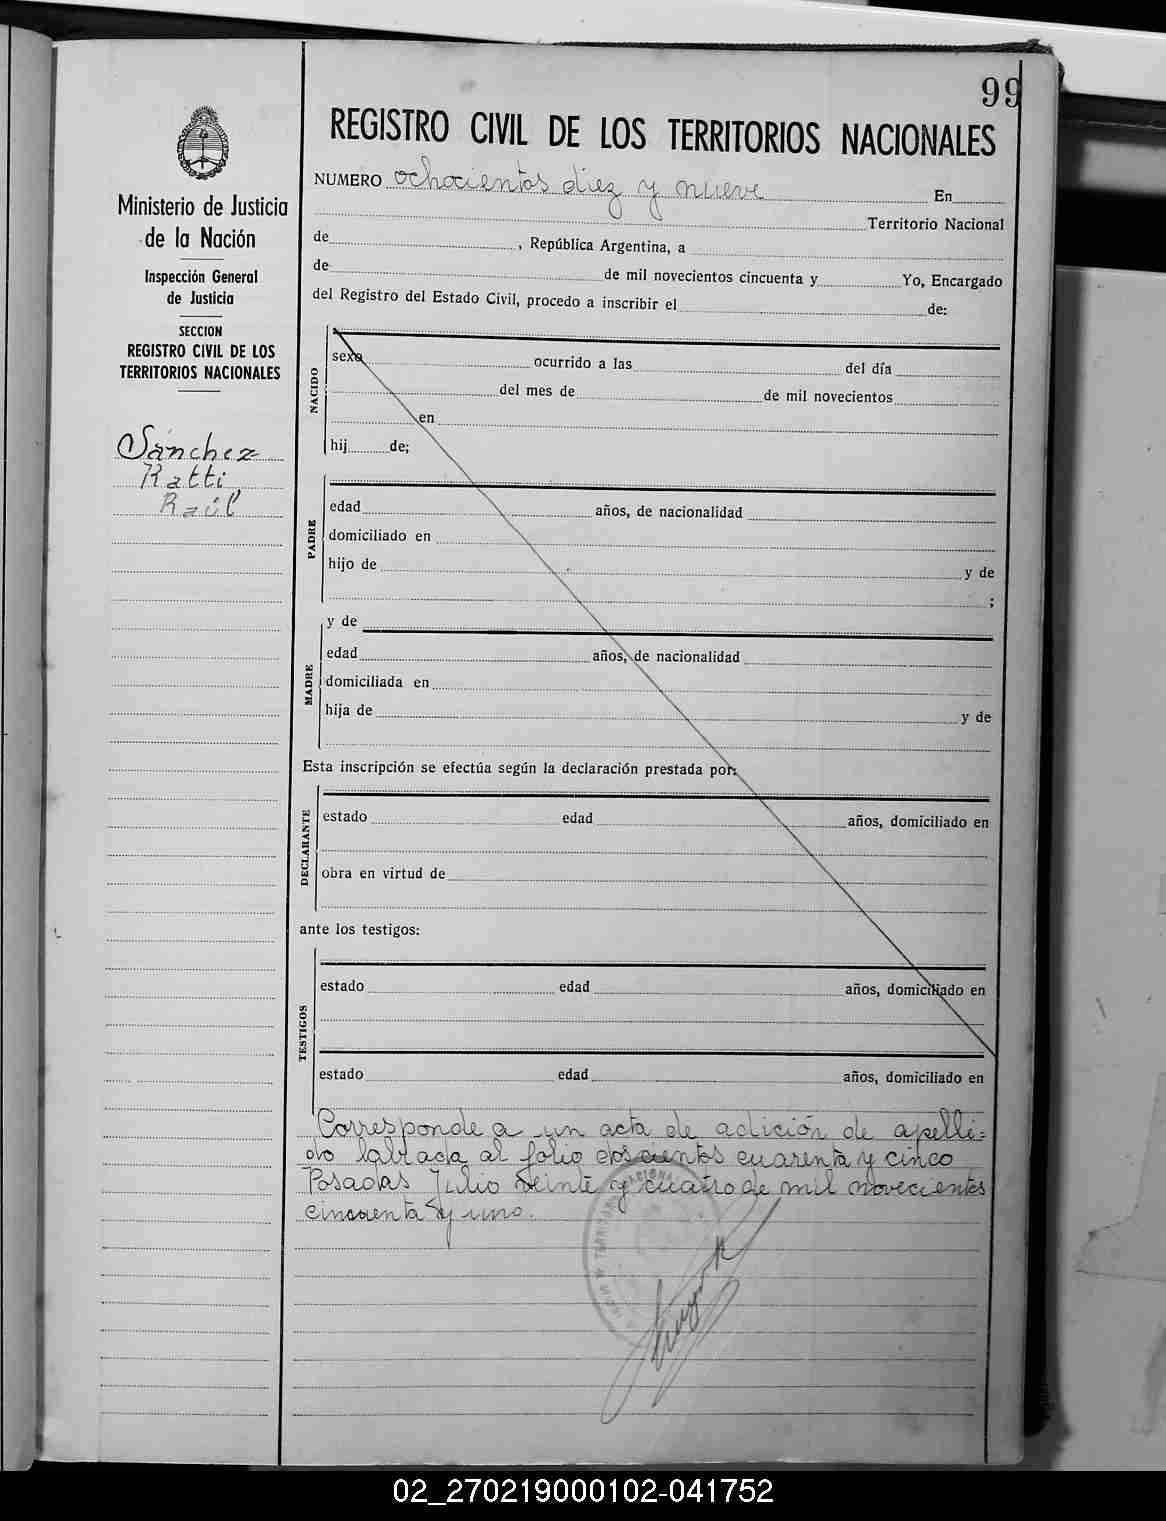 99
REGISTRO CIVIL DE LOS TERRITORIOS NACIONALES
Ministerio de Justicia
de la Nación
Inspección General
de Justicia
SECCION
REGISTRO CIVIL DE LOS
TERRITORIOS NACIONALES
Sánchez
Ratti
Raúl
NUMERO ochocientos diez y nueve En
Territorio Nacional
de , República Argentina, a
de de mil novecientos cincuenta y Yo, Encargado
del Registro del Estado Civil, procedo a inscribir el de:
NACIDO
sexo ocurrido a las del día
del mes de de mil novecientos
en
hij de;
PADRE
edad años, de nacionalidad
domiciliado en
hijo de y de
;
MADRE
y de
edad años, de nacionalidad
domiciliada en
hija de y de
Esta inscripción se efectúa según la declaración prestada por:
DECLARANTE
estado edad años, domiciliado en
obra en virtud de
ante los testigos:
TESTIGOS
estado edad años, domiciliado en
estado edad años, domiciliado en
Corresponde a un acta de adición de apelli=
do labrada al folio doscientos cuarenta y cinco
Posadas Julio veinte y cuatro de mil novecientos
cincuenta y uno.
02_270219000102-041752